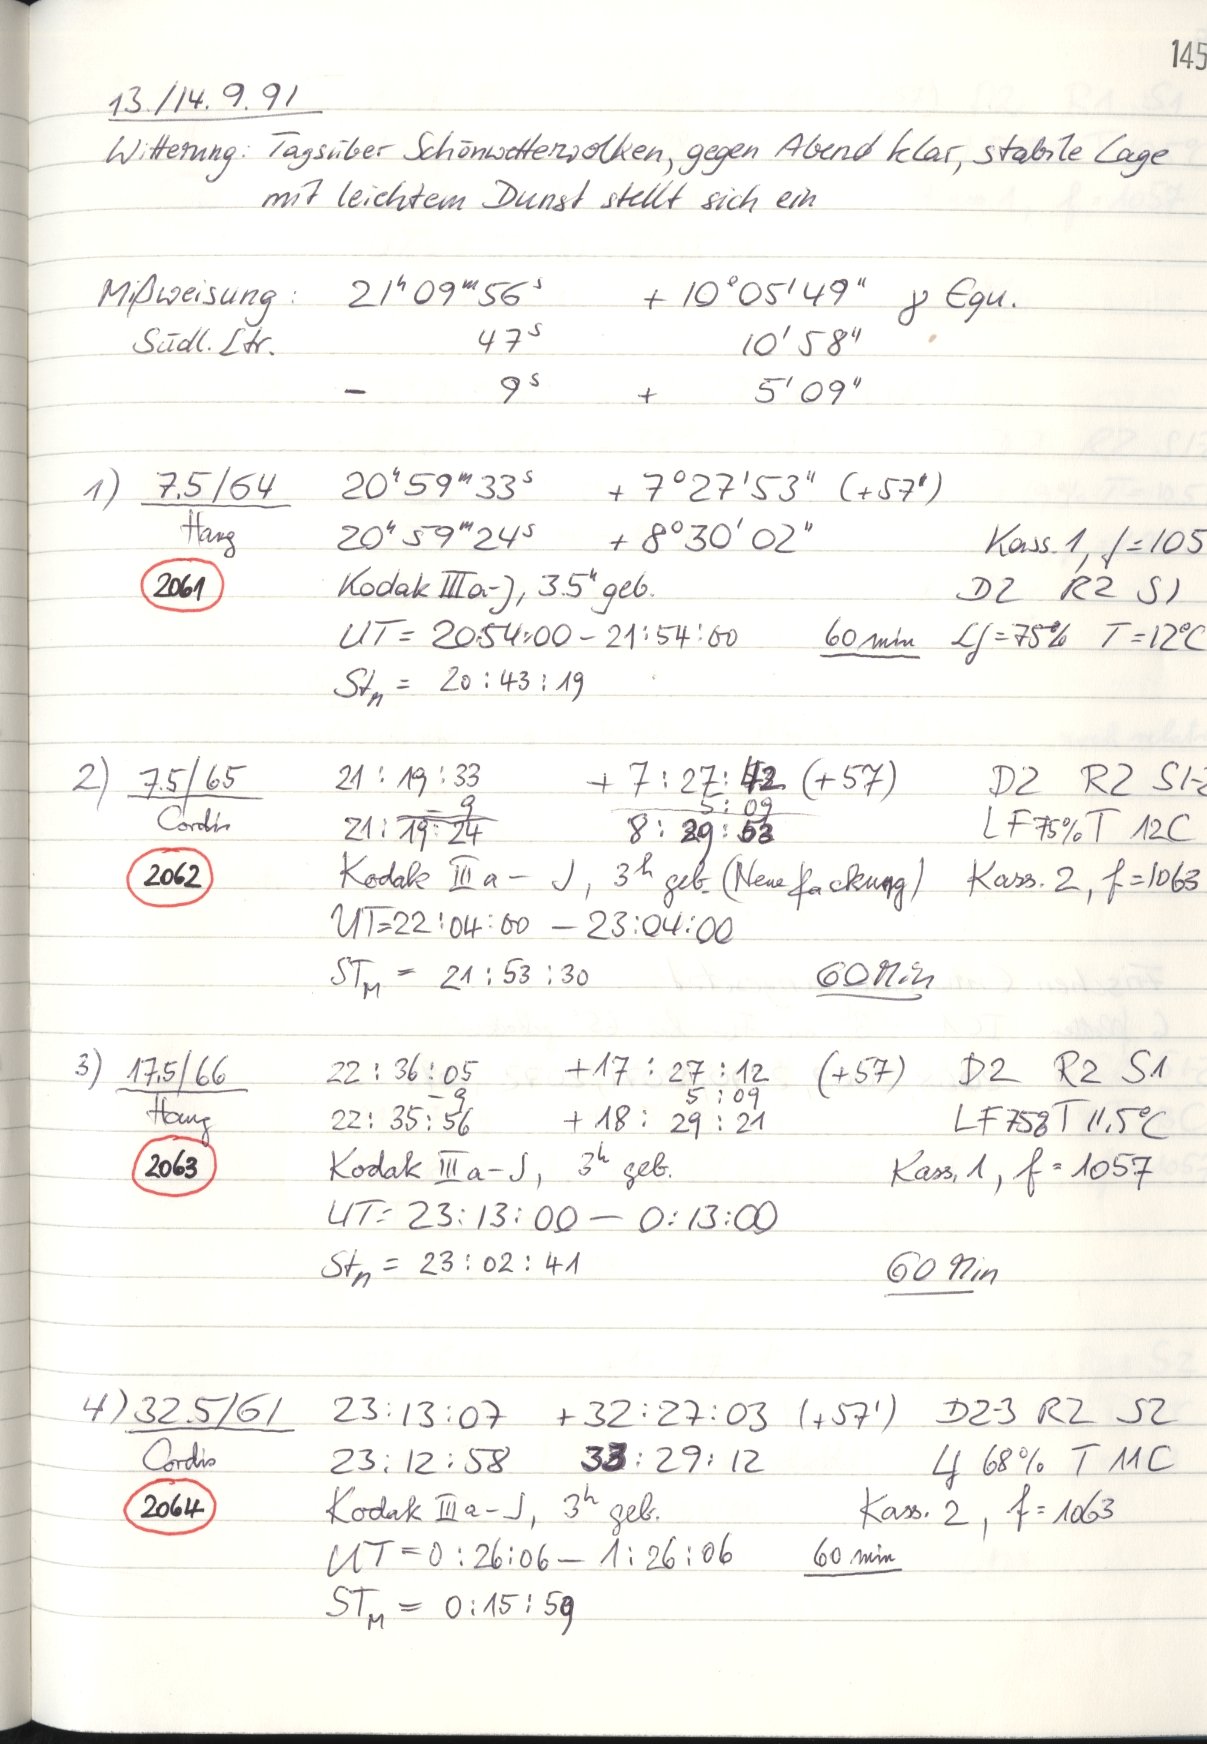 145
13./14. 9. 91
Witterung: Tagsüber Schönwetterwolken, gegen Abend klar, stabile Lage
mit leichtem Dunst stellt sich ein
Mißweisung: 21ʰ 09ᵐ 56ˢ + 10°05'49" γ Equ.
Südl. Ltr. 47ˢ 10' 58"
- 9ˢ + 5' 09"
1) 7.5/64 20ʰ 59ᵐ 33ˢ + 7°27'53" (+57')
Haug 20ʰ 59ᵐ 24ˢ + 8°30' 02" Kass. 1, f=105
2061 Kodak IIIa-J, 3.5ʰ geb. D2 R2 S1
UT = 20:54:00 - 21:54:00 60 min Lf=75% T=12°C
Stₘ = 20:43:19
2) 7.5/65 21:19:33 + 7:27:42 (+57) D2 R2 S1-2
- 9 5:09
Cordis 21:19:24 8:29:53 LF 75% T 12C
2062 Kodak IIIa-J, 3ʰ geb. (Neue Packung) Kass. 2, f=1063
UT=22:04:00 - 23:04:00
STₘ = 21:53:30 60 Min
3) 17.5/66 22:36:05 +17:27:12 (+57) D2 R2 S1
- 9 5:09
Haug 22:35:56 +18:29:21 LF 75% T 11,5°C
2063 Kodak IIIa-J, 3ʰ geb. Kass. 1, f=1057
UT= 23:13:00 - 0:13:00
Stₘ = 23:02:41 60 Min
4) 32.5/61 23:13:07 +32:27:03 (+57') D2-3 R2 S2
Cordis 23:12:58 33:29:12 Lf 68% T 11C
2064 Kodak IIIa-J, 3ʰ geb. Kass. 2, f=1063
UT=0:26:06 - 1:26:06 60 min
STₘ = 0:15:59